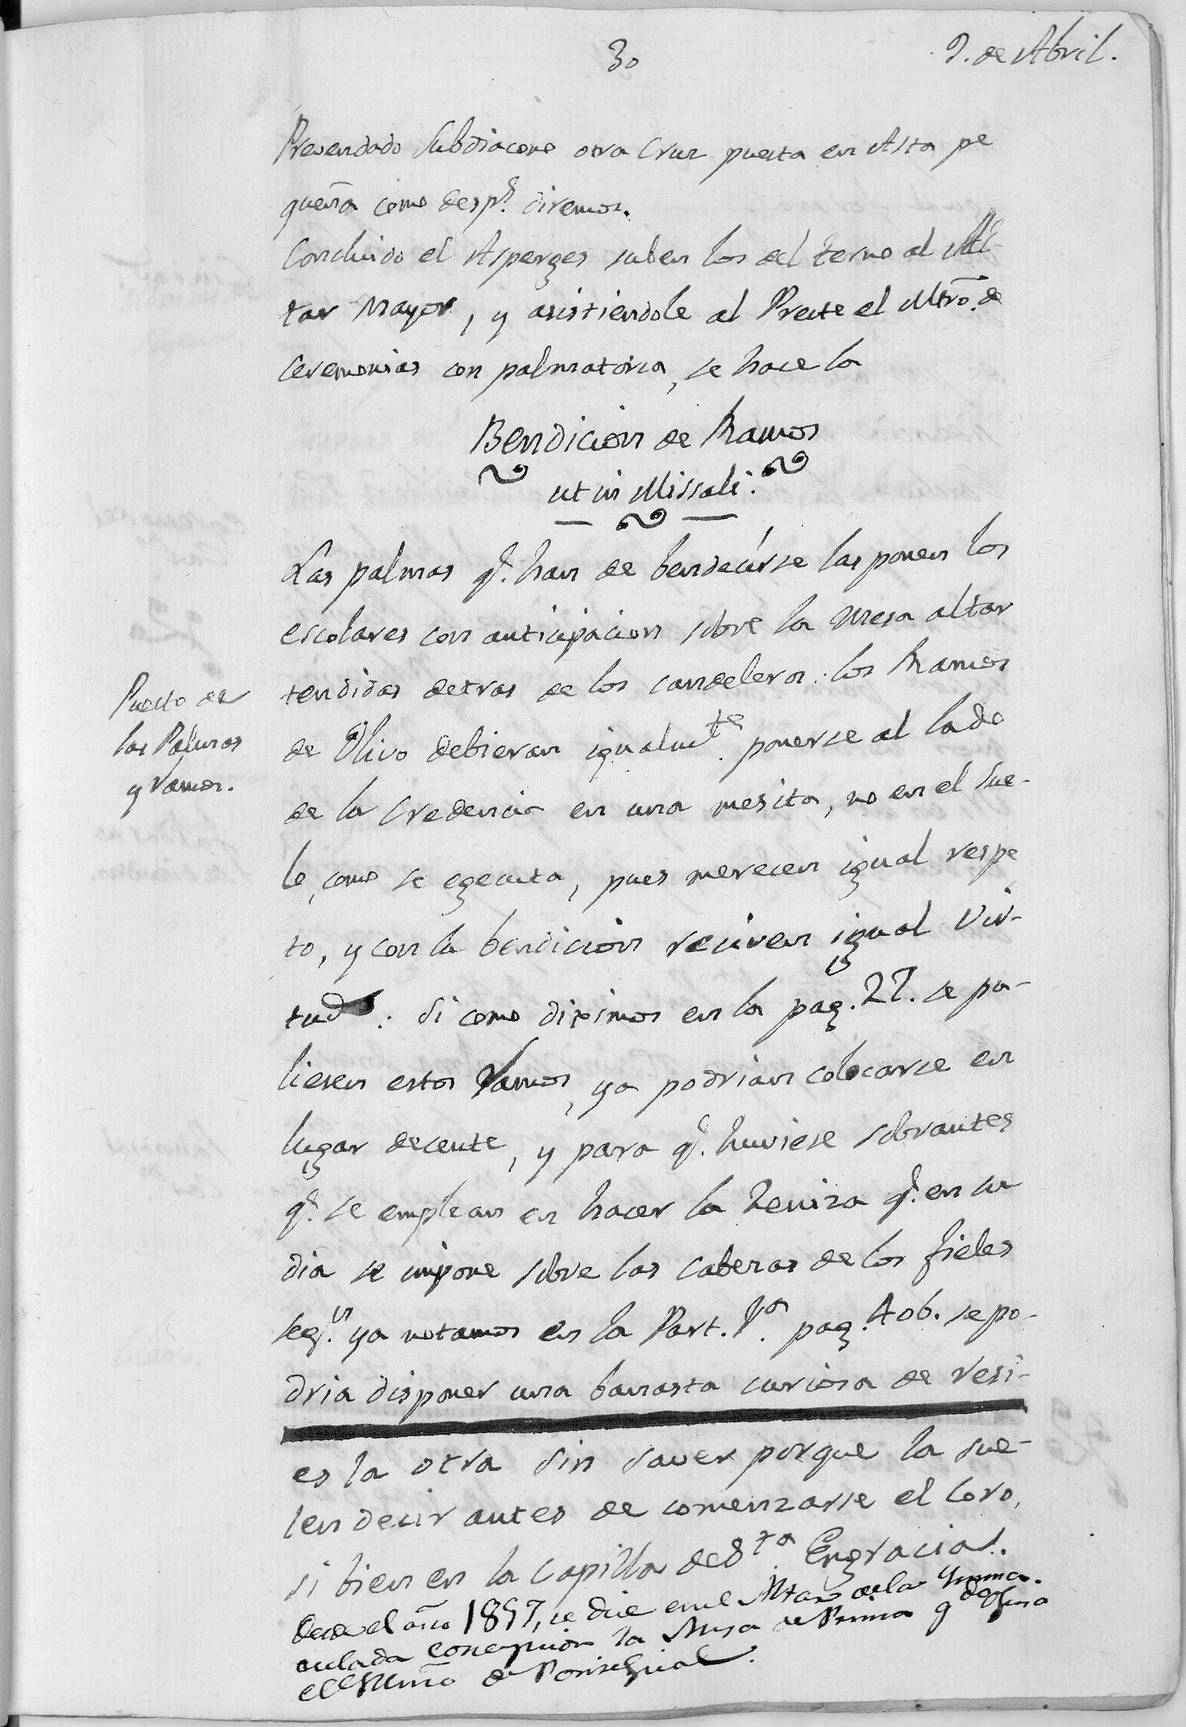 30
9. de Abril.
Prevendado Subdiacono otra Cruz puesta en Asta pe
queña como desp.s diremos.
Concluido el Asperges suben los del terno al Al-
tar Mayor, y asistiendole al Preste el Mtrō. de
Ceremonias con palmatoria, se hace la
Bendicion de Ramos
ut in Missali.
Las palmas q.e han de bendecirse las ponen los
escolares con anticipacion sobre la Mesa altar
tendidas detras de los candeleros: los Ramos
de Olivo debieran igualm.te ponerse al lado
de la Credencia en una mesita, no en el Sue-
lo, como se egecuta, pues merecen igual respe
to, y con la bendicion reciven igual Vir-
tud: Si como diximos en la pag. 27. se pu-
liesen estos Ramos, ya podrian colocarse en
lugar decente, y para q.e huviese sobrantes
q.e se emplean en hacer la Zeniza q.e en su
dia se impone sobre las Cabezas de los fieles
seg.n ya notamos en la Part. 1.a pag. 406. se po-
dria disponer una banasta curiosa de resi-
Puesto de
las Palmas
y Ramos.
es la otra sin saver porque la sue-
len decir antes de comenzarse el Coro,
si bien en la Capilla de S.ta Engracia.
Desde el año 1857, se dice en el Altar de la Ynma-
culada Concepcion la Misa de Prima q dejaro
el Yllmō de Ponisgual.